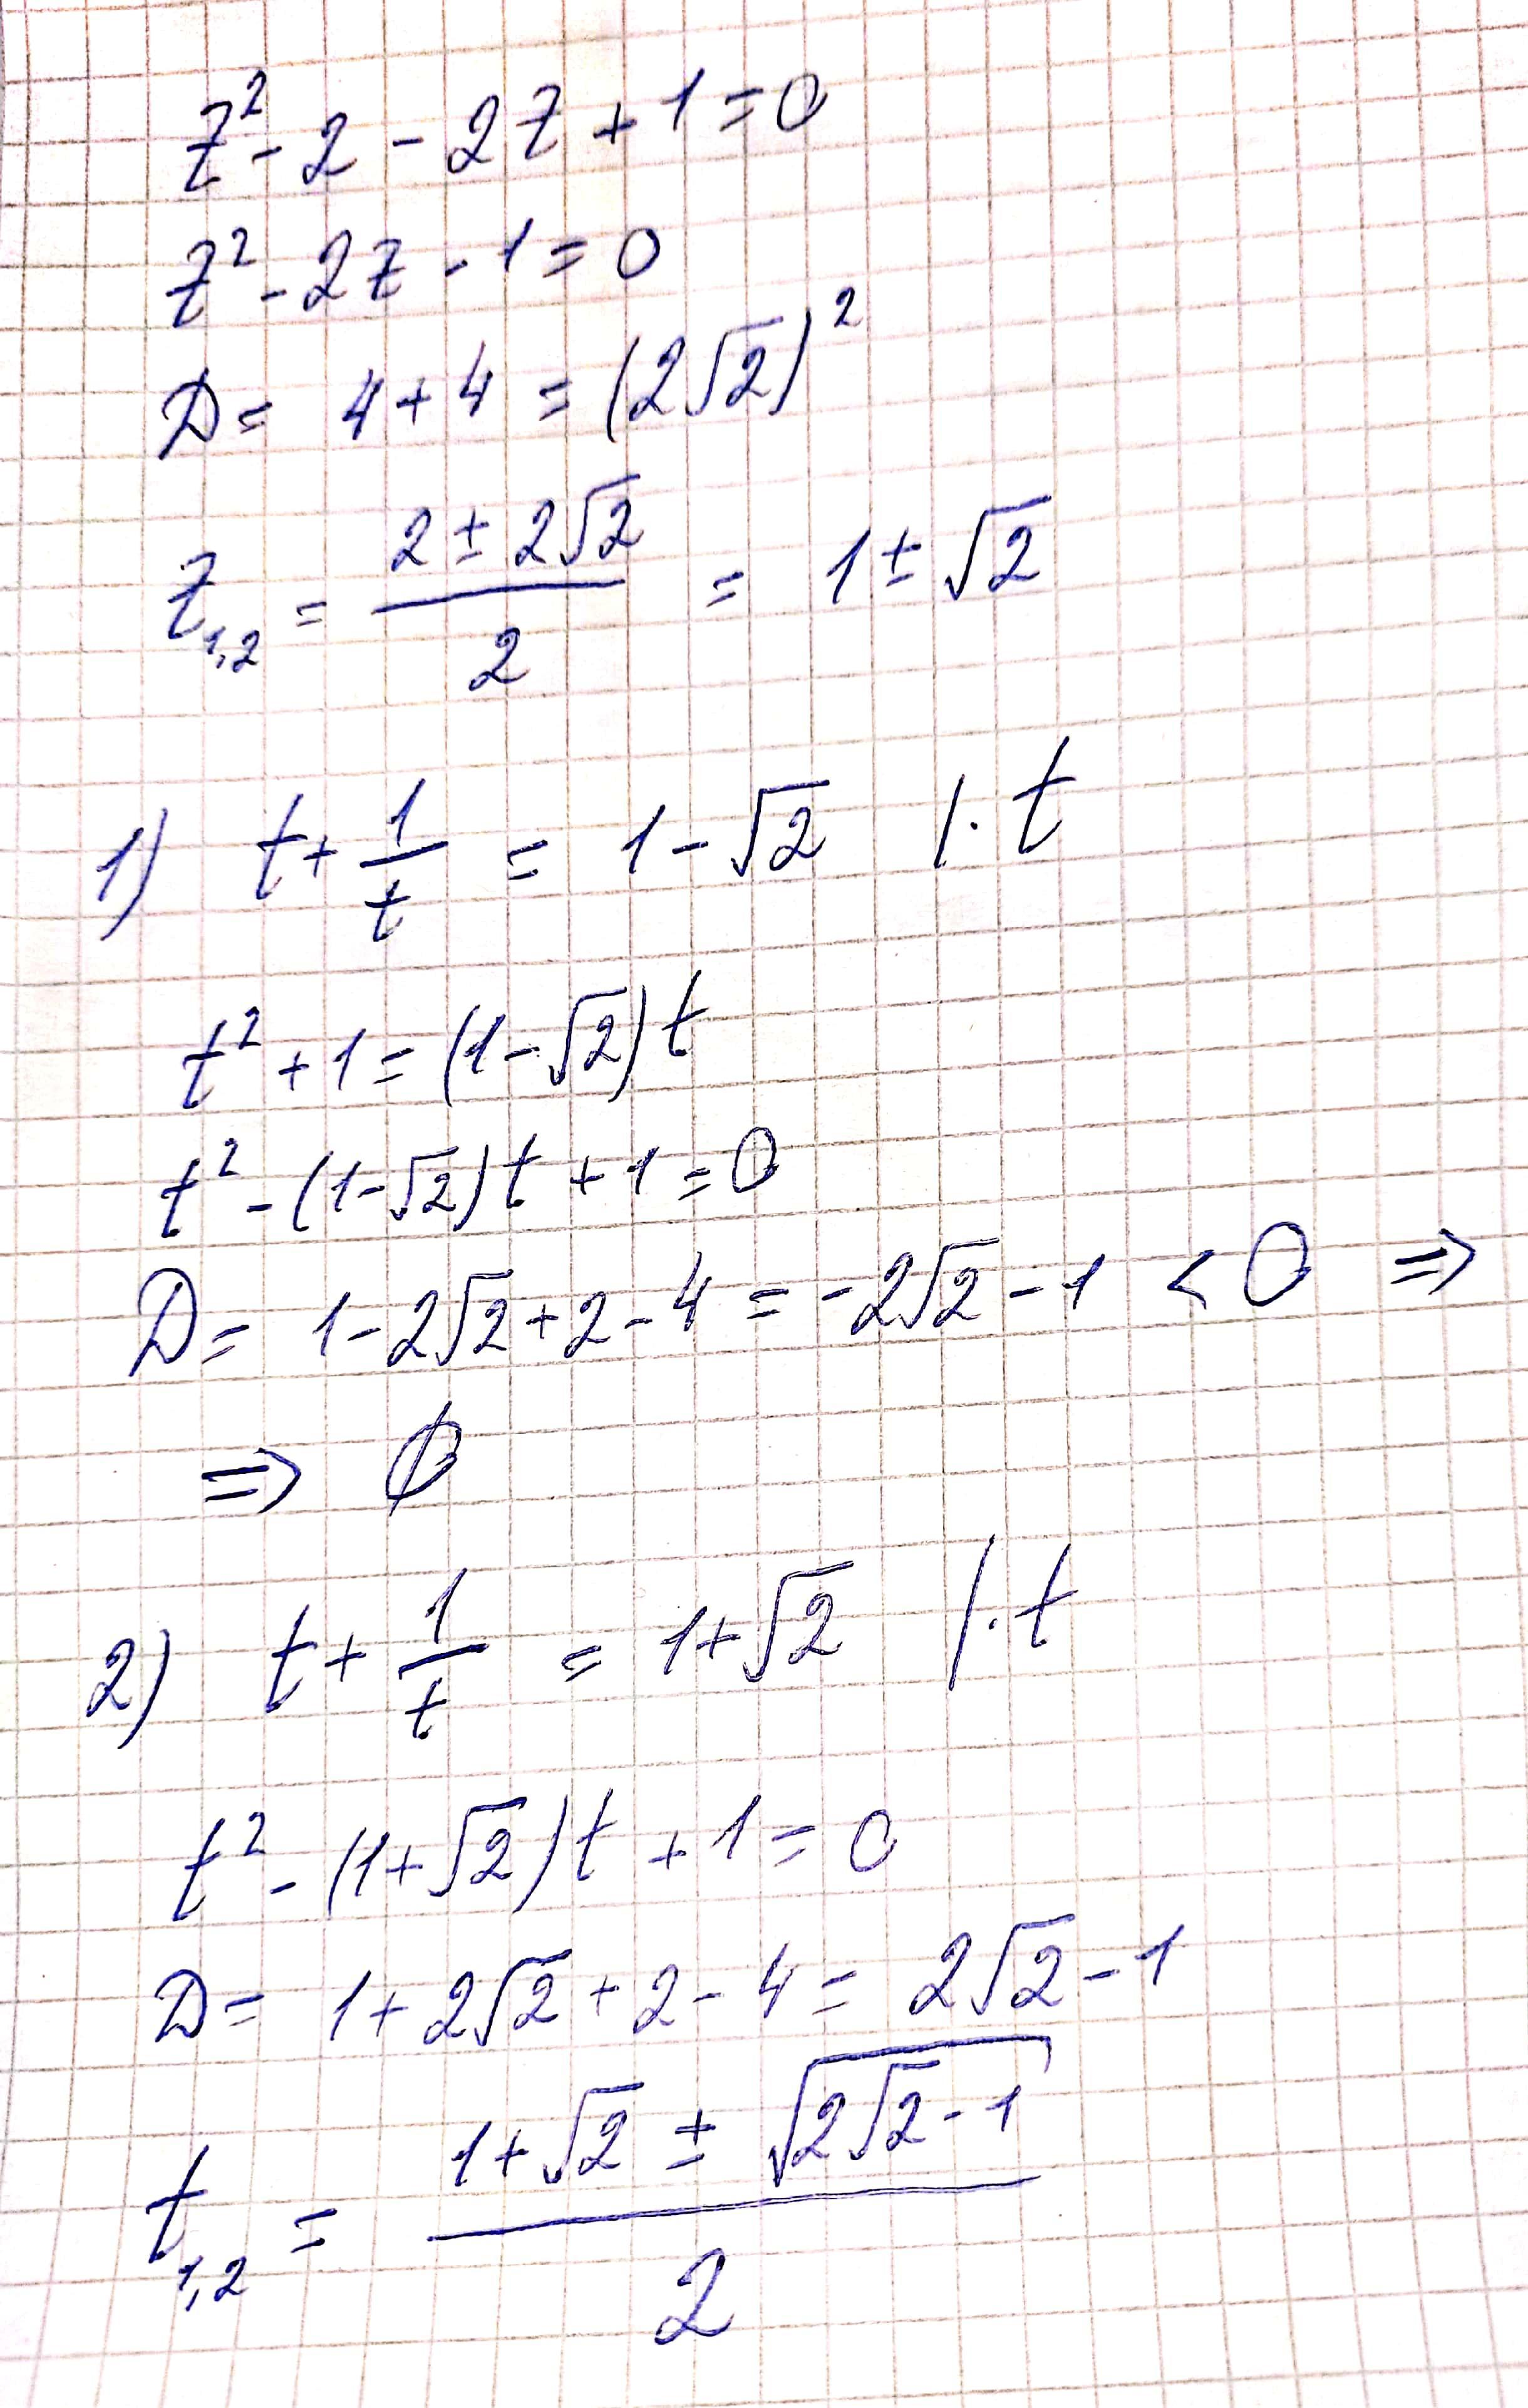 z² - 2 - 2z + 1 = 0
z² - 2z - 1 = 0
D = 4 + 4 = (2√2)²
z₁,₂ = (2 ± 2√2)/2 = 1 ± √2
1) t + 1/t = 1 - √2 | · t
t² + 1 = (1 - √2)t
t² - (1 - √2)t + 1 = 0
D = 1 - 2√2 + 2 - 4 = -2√2 - 1 < 0 ⇒
⇒ ∅
2) t + 1/t = 1 + √2 | · t
t² - (1 + √2)t + 1 = 0
D = 1 + 2√2 + 2 - 4 = 2√2 - 1
t₁,₂ = (1 + √2 ± √(2√2 - 1))/2